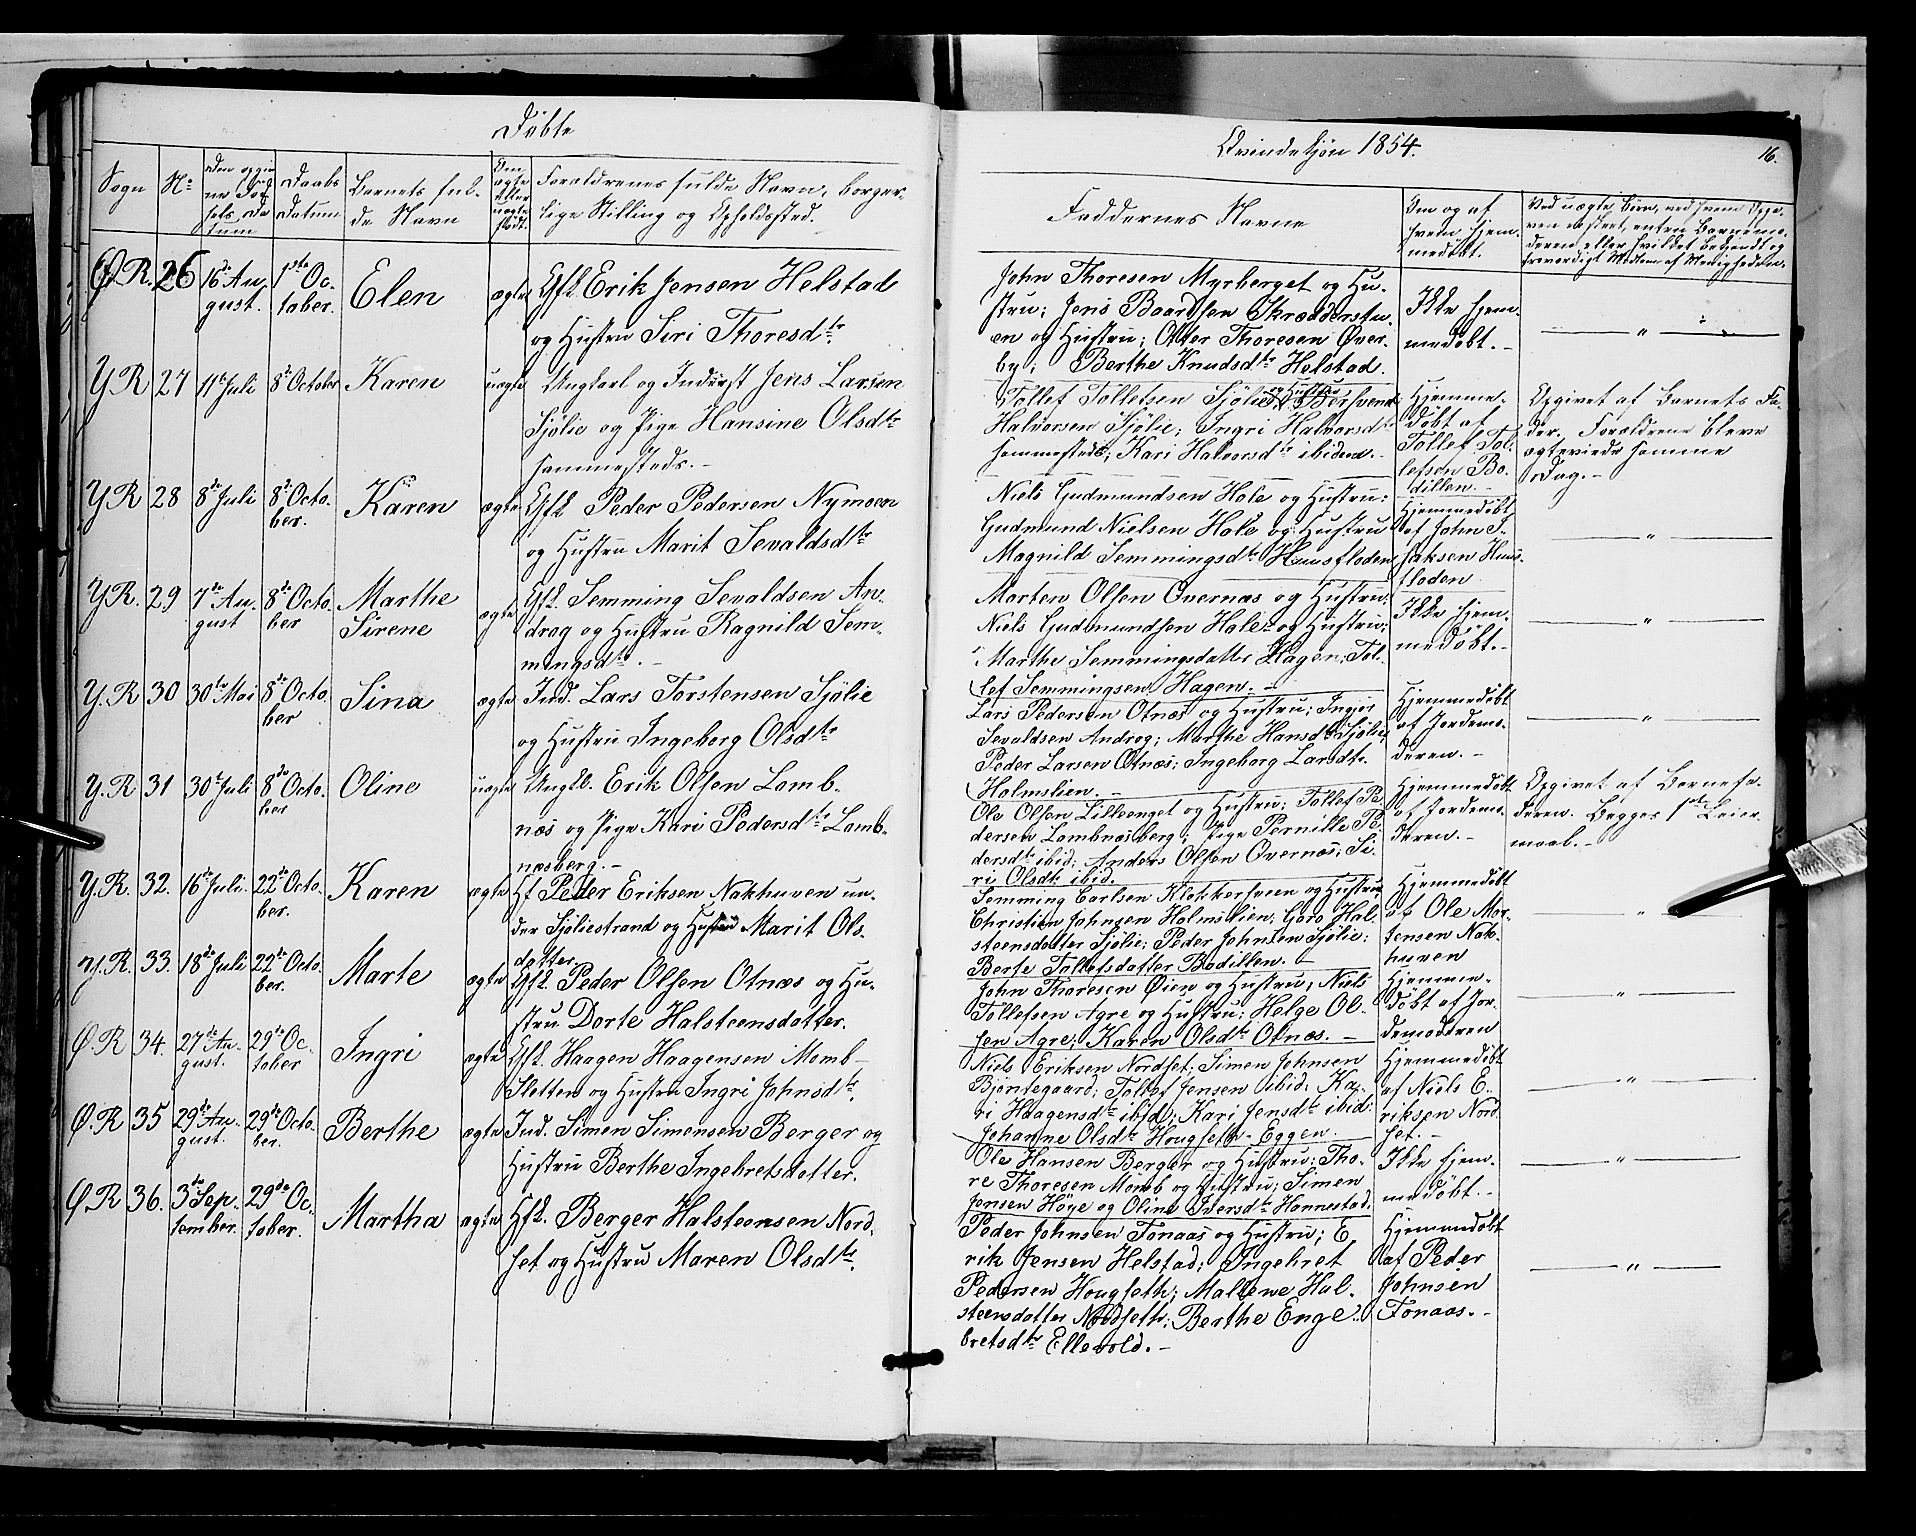 Døbte
Qvindekjøn 1854.
16.
Sogn
No
Den opgiv-
ne Fød-
sels Da-
tum
Daabs
Datum
Barnets ful-
de Navn
Om
ægte
eller
uægte
født.
Forældrenes fulde Navn, borger-
lige Stilling og Opholdssted.
Faddernes Navne
Om og af
hvem hjem-
medøbt.
Ved uægte Børn, ved hvem Opga-
ven er skeet, enten Barnemo-
deren eller hvilket bekjendt og
troværdigt Medlem af Menigheden.
Ø.R. 26 16de Au-
gust. 1ste Oc-
tober. Elen ægte Gfl. Erik Jensen Helstad
og Hustru Siri Thoresdtr.
John Thoresen Myrberget og Hu-
stru; Jens Baardsen Skrædderstu-
en og Hustru; Otter Thoresen Øver-
by; Berthe Knudsdtr Helstad.
Ikke hjem-
medøbt. -
Y.R 27 11te Juli 8de October Karen uægte Ungkarl og Inderst Jens Larsen
Sjølie og Pige Hansine Olsdtr
sammesteds. -
Tollef Tollefsen Sjølie og Hustru;
Halvorsen Sjølie; Ingri Halvorsdtr
sammesteds; Kari Halvorsdtr ibidem. -
Hjemme-
døbt af
Tollef Tol-
lefsen Bo-
dillen. -
Opgivet af Barnets Fa-
der. Forældrene bleve
ægteviede samme
Dag. -
Y.R 28 8de Juli 8de Octo-
ber. Karen ægte Gfl. Peder Pedersen Nymoen
og Hustru Marit Sevaldsdtr
Niels Gudmundsen Hole og Hustru;
Gudmund Nielsen Hole og Hustru
Magnild Semmingsdtr Huusfloden
Hjemmedøbt
af John I-
saksen Huus-
floden
Y.R. 29 7de Au-
gust 8de Octo-
ber Marthe
Sirene ægte Gfl. Semming Sevaldsen An-
drag og Hustru Ragnild Sem-
mingsdtr. -
Morten Olsen Øvernæs og Hustru;
Niels Gudmundsen Hole og Hustru;
Marthe Semmingsdatter Hagen; Tol-
lef Semmingsen Hagen. -
Ikke hjem-
medøbt. -
Y.R 30 30te Mai 8de Octo-
ber Sina ægte Ind. Lars Torstensen Sjølie
og Hustru Ingeborg Olsdtr
Lars Pedersen Otnæs og Hustru; Ingri
Sevaldsen Andrag; Marthe Hansdtr Sjølie;
Peder Larsen Otnæs; Ingeborg Larsdtr.
Holmslien. -
Hjemmedøbt
af Jordemo-
deren. -
Y.R 31 30te Juli 8de Octo-
ber Oline uægte Ungkl. Erik Olsen Lomb-
næs og Pige Kari Pedersdtr Lomb-
næsberg. -
Ole Olsen Lilleenget og Hustru; Tollef Pe-
dersen Lombnæsberg; Pige Pernille Pe-
dersdtr ibid; Anders Olsen Øvernæs; Si-
ri Olsdtr ibid.
Hjemmedøbt
af Jordemo-
deren. -
Opgivet af Barnefa-
deren. Begges 1ste Leier-
maal. -
Y.R. 32. 16de Juli. 22de Octo-
ber. Karen ægte Hf Peder Eriksen Nakhuven un-
der Sjöliestrand og Hustru Marit Ols-
datter.
Semming Carlsen Klokkersveen og Hustru
Christian Johnsen Holmslien; Goro Hal-
steensdatter Sjølie; Peder Johnsen Sjølie;
Berte Tollefsdatter Bodillen. -
Hjemmedøbt
af Ole Mor-
tensen Nak-
huven
Y.R. 33. 18de Juli 22de Octo-
ber. Marte ægte Gfl. Peder Olsen Otnæs og Hu-
stru Dorte Halsteensdatter.
John Thoresen Øien og Hustru; Niels
Tollefsen Agre og Hustru; Helge Ol-
sen Agre; Karen Olsdtr Otnæs. -
Hjemme-
døbt af Jor-
demodtren
Ø.R 34. 27de Au-
gust. 29de Oc-
tober Ingri ægte Gfl. Haagen Haagensen Momb-
Sletten og Hustru Ingri Johnsdtr.
Niels Eriksen Nordset; Simen Johnsen
Bjøntegaard; Tollef Jensen ibid; Ka-
ri Haagensdtr ibid; Kari Jensdtr ibid:
Johanne Olsdtr Hougseth-Eggen.
Hjemmedøbt
af Niels E-
riksen Nord-
set. -
Ø.R 35 29de Au-
gust. 29de Octo-
ber. Berthe ægte Ind. Simen Simensen Berger og
Hustru Berthe Ingebretsdatter.
Ole Hansen Berger og Hustru; Tho-
re Thoresen Momb og Hustru; Simen
Jensen Høye og Oline Iversdtr Hannestad.
Ikke hjem-
medøbt. -
Ø.R 36. 3de Sep-
tember. 29de Oc-
tober. Martha ægte Gfl. Berger Halsteensen Nord-
set og Hustru Maren Olsdtr.
Peder Johnsen Fonaas og Hustru; E-
rik Jensen Helstad; Ingebret
Pedersen Hougseth; Mallene Hal-
steensdatter Nordseth; Berthe Enge-
bretsdtr Ellevold. -
Hjemmedøbt
af Peder
Johnsen
Fonaas. -